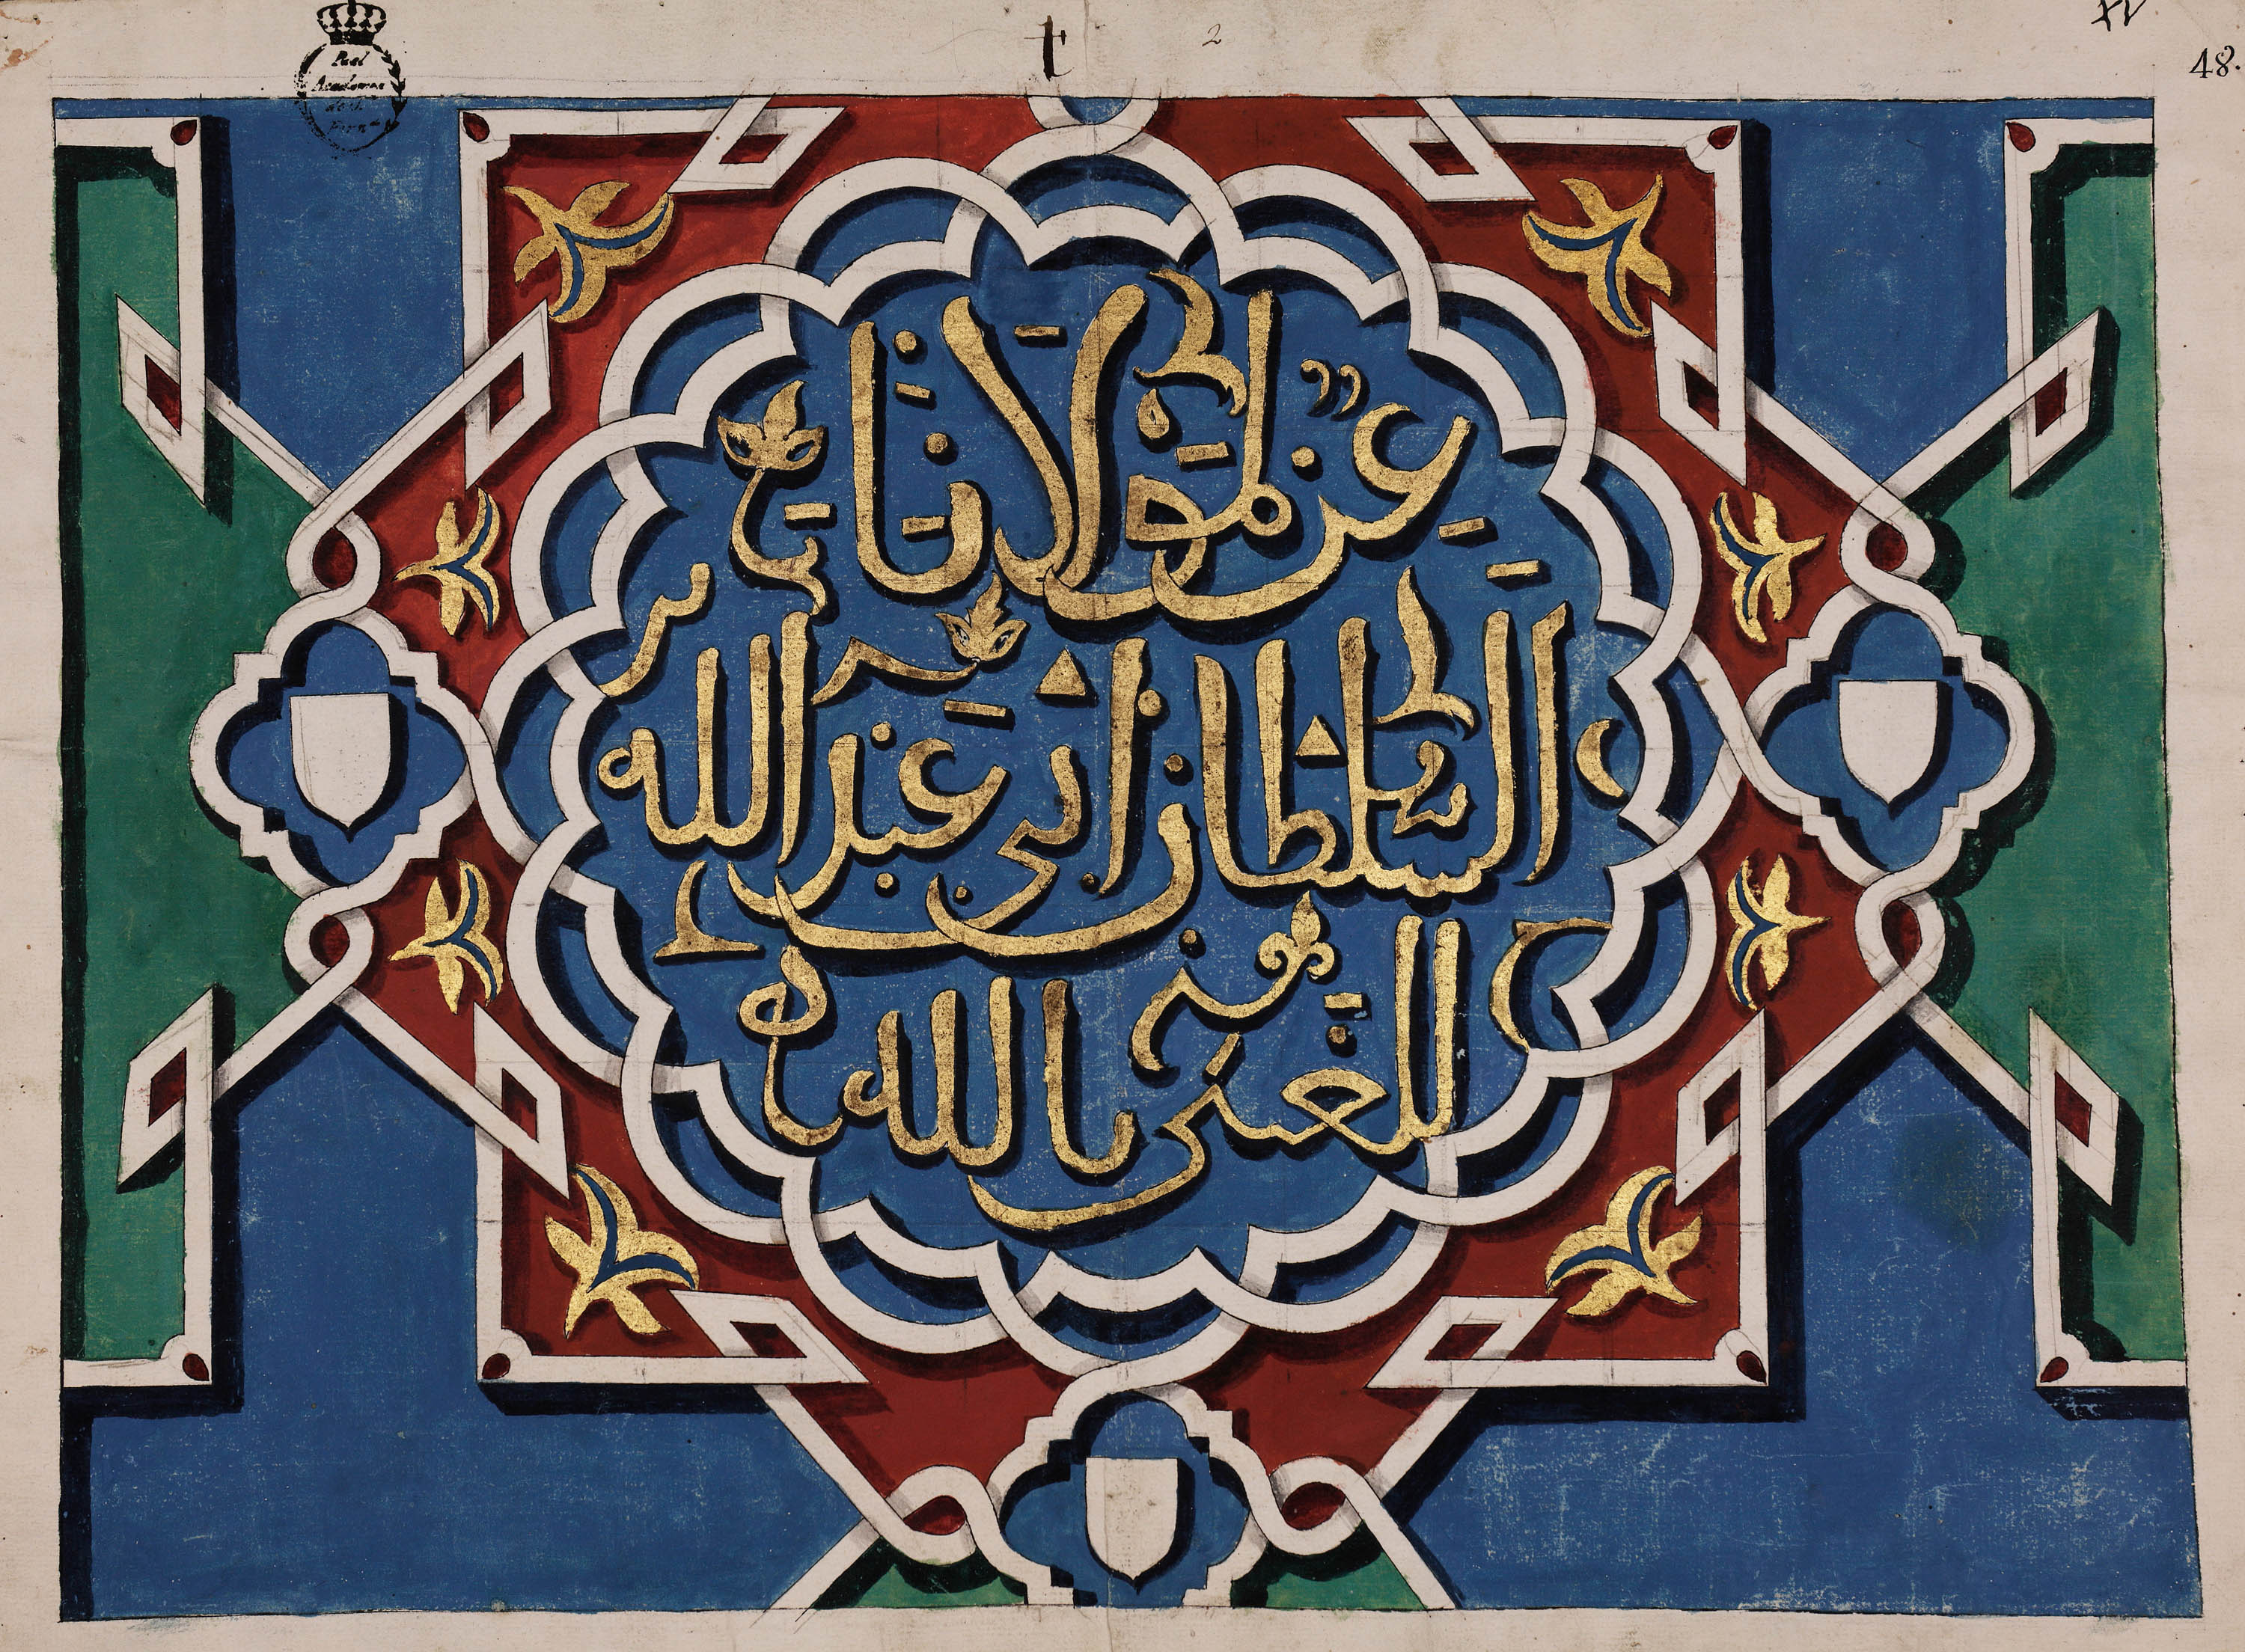 Real
Academia
de Sn
Ferndo
2
XV
48.
عز لمولانا
السلطان ابي عبد الله
الغني بالله